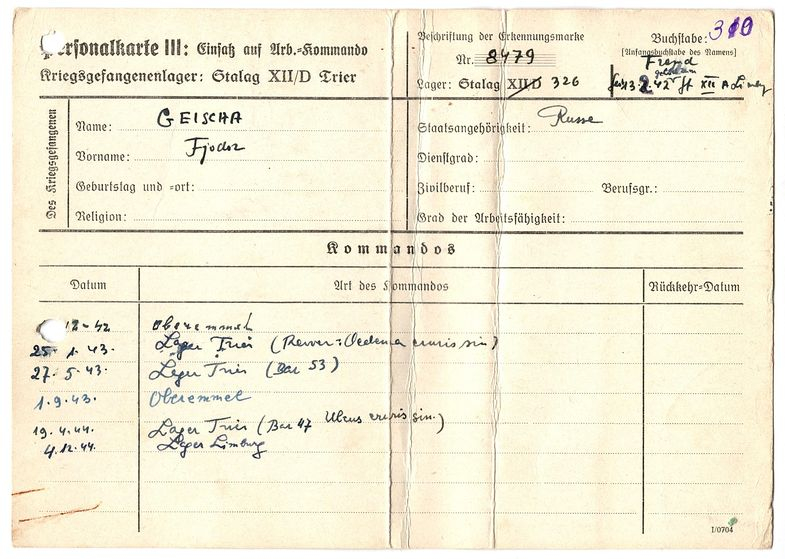 Personalkarte III: Einsatz auf Arb.-Kommando
Kriegsgefangenenlager: Stalag XII/D Trier
Beschriftung der Erkennungsmarke
Nr. 8479
Lager: Stalag XII/D 326
Buchstabe: 310
[Anfangsbuchstabe des Namens]
XII A Limburg
Des Kriegsgefangenen
Name: GEISCHA
Vorname: Fjodor
Geburtstag und =ort:
Religion:
Staatsangehörigkeit: Russe
Dienstgrad:
Zivilberuf: Berufsgr.:
Grad der Arbeitsfähigkeit:
Kommandos
Datum Art des Kommandos Rückkehr=Datum
12-42 Oberemmel
25. 1. 43. Lager Trier (Oedema cruris sin)
27. 5. 43. Lager Trier (Bar 53)
1. 9. 43. Oberemmel
19. 4. 44. Lager Trier (Bar 47 Ulcus cruris sin.)
4. 12. 44. Lager Limburg
I/0704